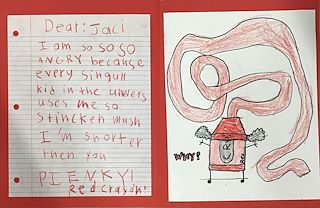 Dear: Jaci
I am so SO SO
ANGRY because
every singull
kid in the univers
uses me so
Stincken mush
I'm shorter
then you
PIENKY!
Red crayon!
WHY?